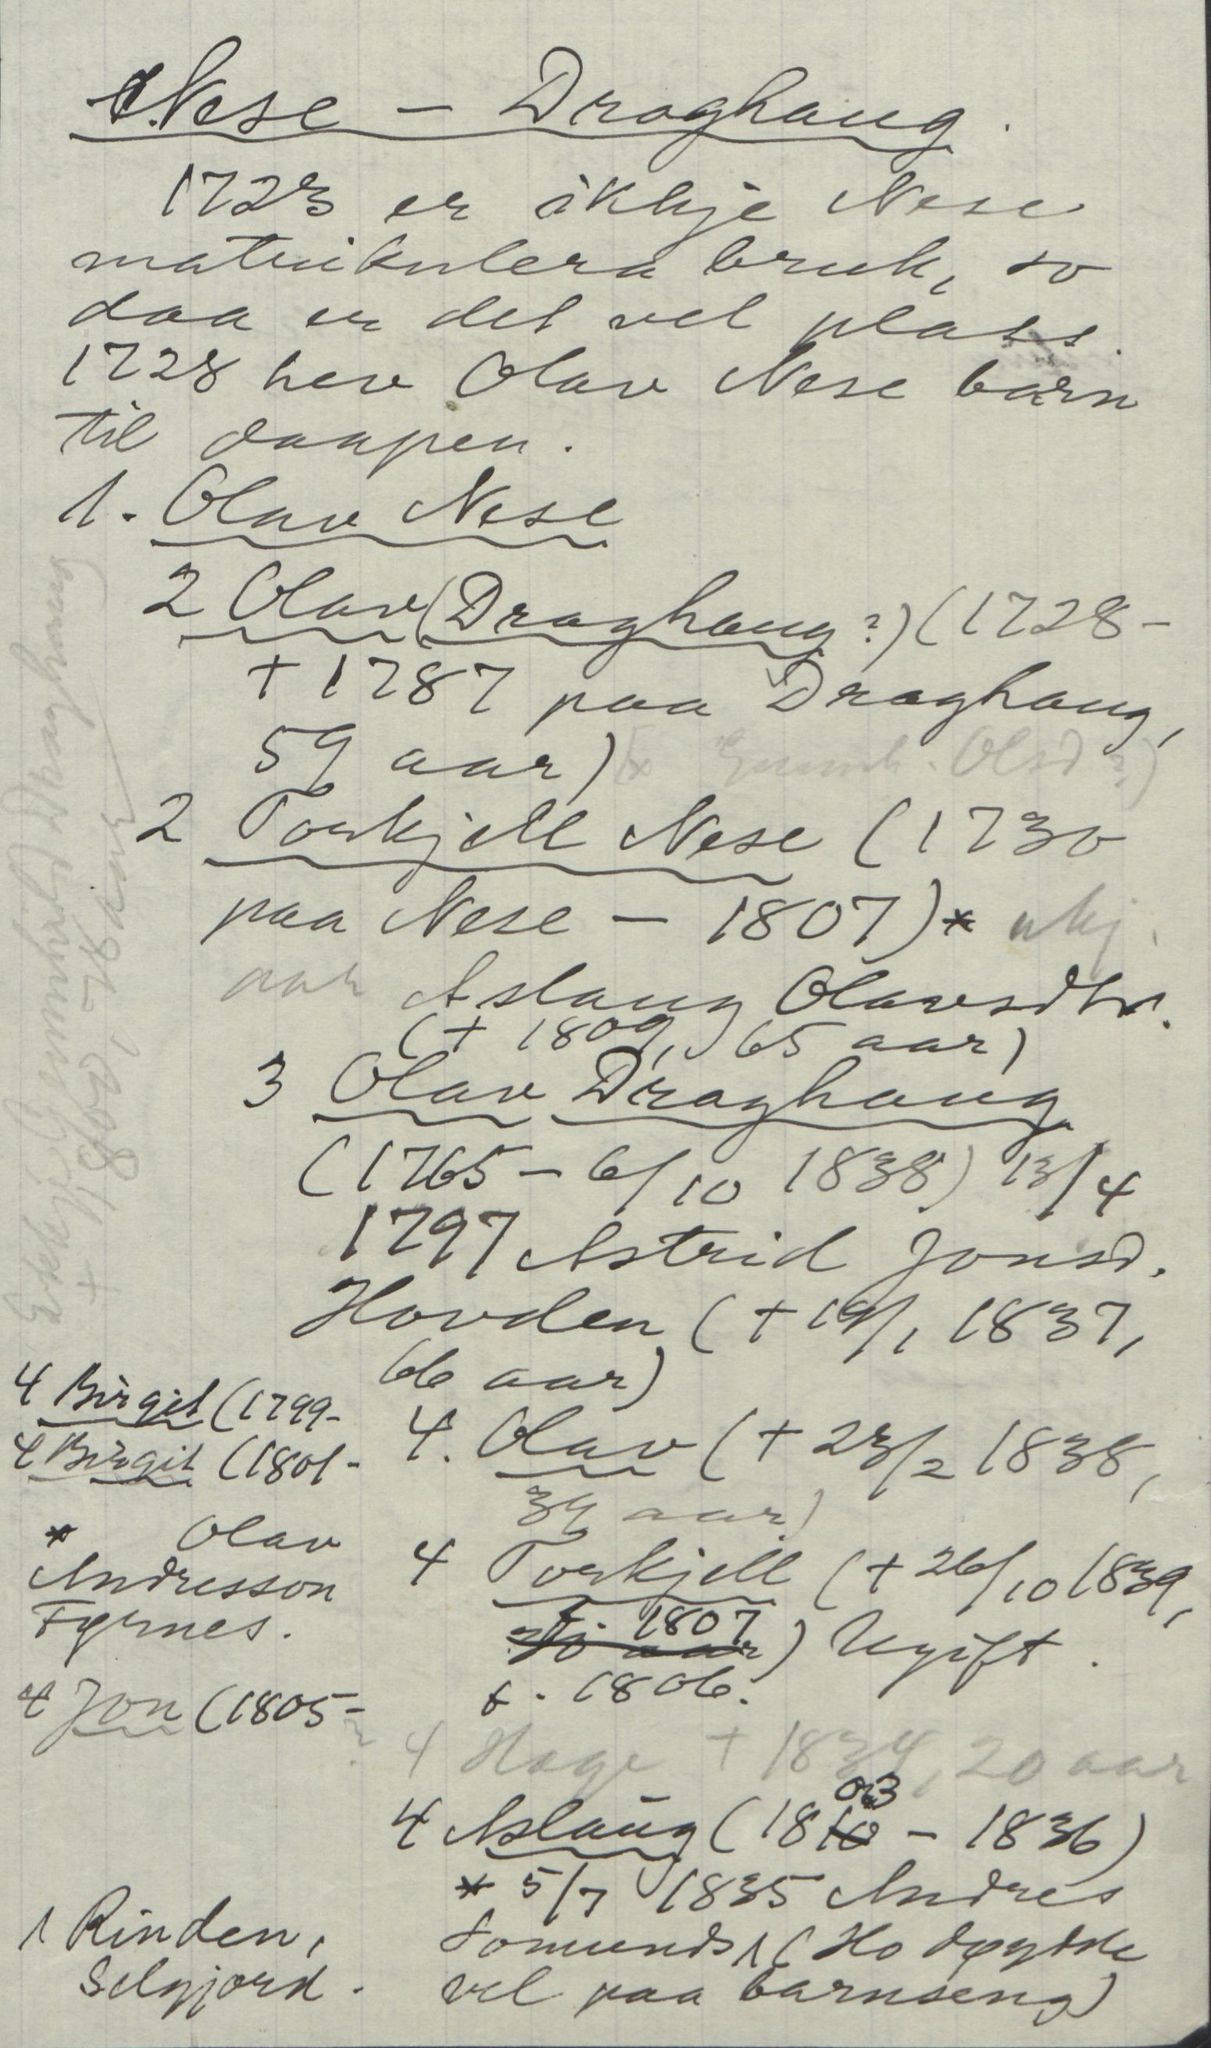 Nese – Draghaug.
1723 er ikkje Nese
matrikulera bruk, so
daa er det vel plass.
1728 hev Olav Nese barn
til daapen.
1. Olav Nese
2 Olav (Draghaug?) (1728–
+ 1787 paa Draghaug,
59 aar) (x Gunnh. Olsd?)
2 Torkjell Nese (1730
paa Nese – 1807) * ekj.
aak Aslaug Olavsdtr.
(+ 1809, 65 aar)
3 Olav Draghaug
(1765 – 6/10 1838) 13/4
1797 Astrid Jonsd.
Hovden (+ 19/1 1837,
66 aar)
4. Olav (+ 23/2 1838,
39 aar)
4 Torkjell (+ 26/10 1839,
1807
aar) Ugift.
f. 1806.
4 Hæge + 1834, 20 aar
03
4 Aslaug (1810 – 1836)
* 5/7 1835 Andres
Somunds 1 (Ho døydde
vel paa barnseng)
4 Birgit (1799–
4 Birgit (1801–
* Olav
Andresson
Fyrnes.
4 Jon (1805–
?
1 Rinden,
Selgjord.
Enkkja Gunnhild Draghaug
+ 11/6 1808, 78 aar